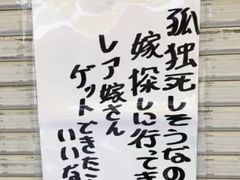 孤独死しそうなの
嫁探しに行ってき
レア嫁さん
ゲットできたこ
いいな